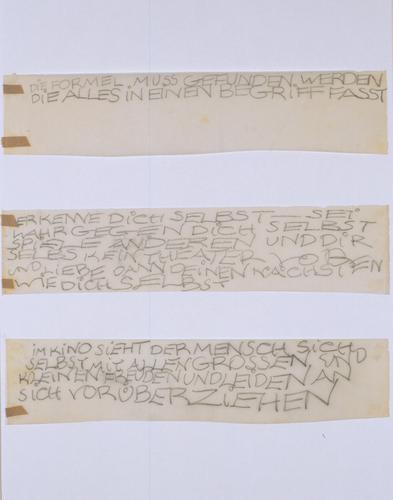 DIE FORMEL MUSS GEFUNDEN WERDEN
DIE ALLES IN EINEN BEGRIFF FASST
ERKENNE DICH SELBST – SEI
WAHR GEGEN DICH SELBST
SPIELE ANDEREN UND DIR
SELBS KEIN THEATER VOR
UND LIEBE DANN DEINEN NÄCHSTEN
WIE DICH SELBST
IM KINO SIEHT DER MENSCH SICH
SELBST MIT ALLEN GROSSEN UND
KLEINEN FREUDEN UND LEIDEN AN
SICH VORÜBERZIEHEN